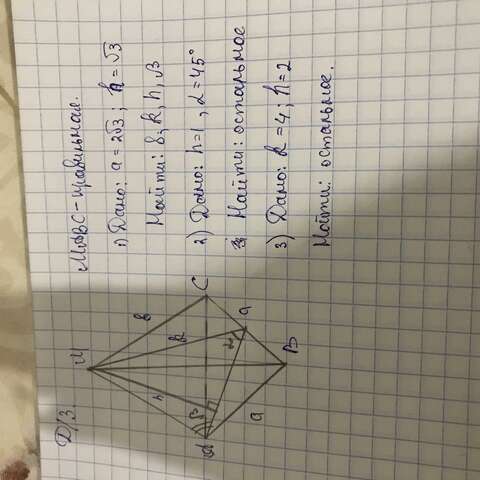 Д/З.
МАВС - правильная.
1) Дано: a = 2√3; h = √3
Найти: b, k, h, β
2) Дано: h = 1, α = 45°
Найти: остальное
3) Дано: k = 4; h = 2
Найти: остальное.
M
b
k
h
C
β
α
a
A
B
a